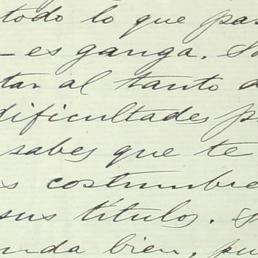 todo lo que pas
- es ganga. So
tar al tanto d
dificultades p
sabes que te
s costumbre
sus títulos. S
nda bien, pu